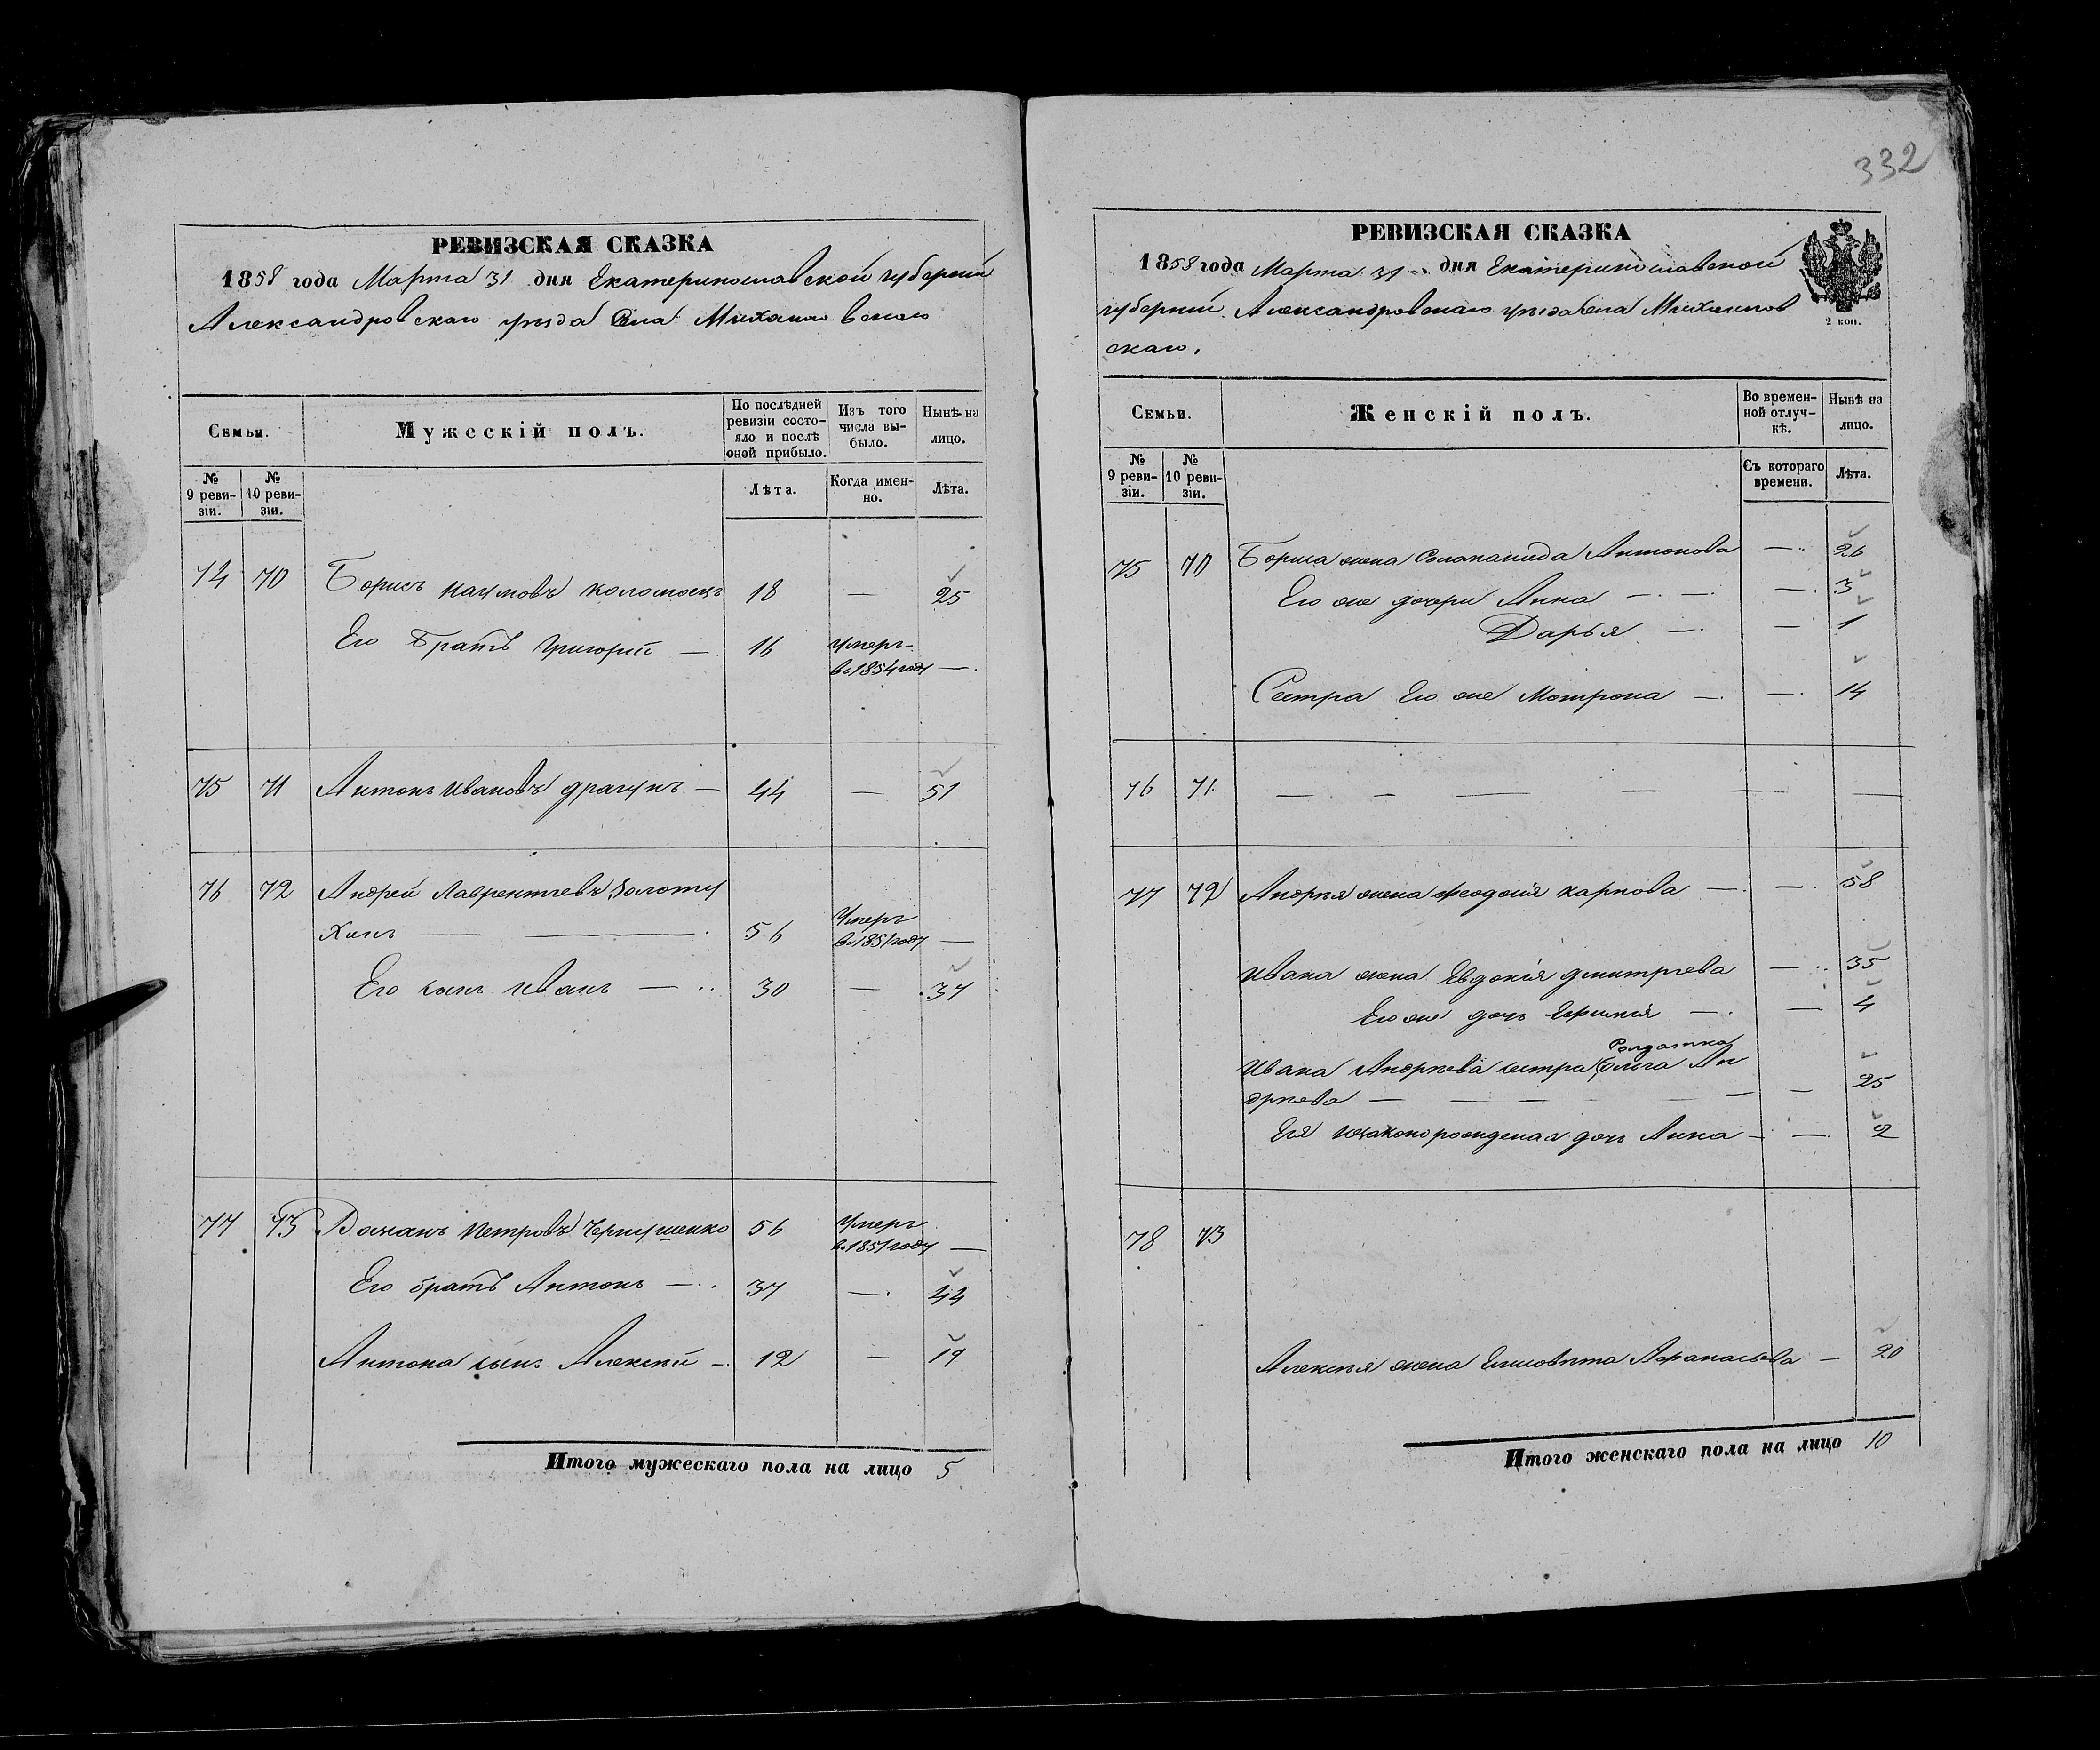 332
РЕВИЗСКАЯ СКАЗКА
1858 года Марта 31 дня Екатеринославской губерніи
Александровскаго уѣзда Села Михайловскаго
Семьи.
Мужескій полъ.
По послѣдней ревизіи состо-
яло и послѣ
оной прибыло.
Изъ того
числа вы-
было.
Нынѣ на
лицо.
№
9 реви-
зіи.
№
10 реви-
зіи.
Лѣта.
Когда имен-
но.
Лѣта.
74 70 Борисъ Наумовъ Коломоецъ 18 — 25
Его Братъ Григорій — 16 умеръ
въ 1854 году —
75 71 Антонъ Ивановъ Драгунъ — 44 — 51
76 72 Андрей Лаврентьевъ Золоту
хинъ — — 56 Умеръ
въ 1851 году —
Его сынъ Иванъ — 30 — 37
77 73 Петровъ 56 Умеръ
въ 1851 году —
Его братъ Антонъ — 37 — 44
Антона сынъ Алексѣй — 12 — 19
Итого мужескаго пола на лицо 5
РЕВИЗСКАЯ СКАЗКА
1858 года Марта 31 дня Екатеринославской
губерніи Александровскаго уѣзда села Михайлов
скаго.
2 коп.
Семьи.
Женскій полъ.
Во времен-
ной отлуч-
кѣ.
Нынѣ на
лицо.
№
9 реви-
зіи.
№
10 реви-
зіи.
Съ котораго
времени.
Лѣта.
75 70 Бориса жена Соломанида Антонова — 26
Его же дочери Анна — — — 3
Дарья — — 1
Сестра Его же Мотрона — — 14
76 71. — — — — — —
77 72 Андрѣя жена Феодосія Карпова — — 58
Ивана жена Евдокія Дмитріева — 35
Его же дочь — — 4
Солдатка
Ивана Андрѣева сестра Ольга Ан
дрѣева — — — — — — 25
Ея незаконорожденая дочь Анна — — 2
78 73
Алексѣя жена Елисовѣта Афанасьева — 20
Итого женскаго пола на лицо 10